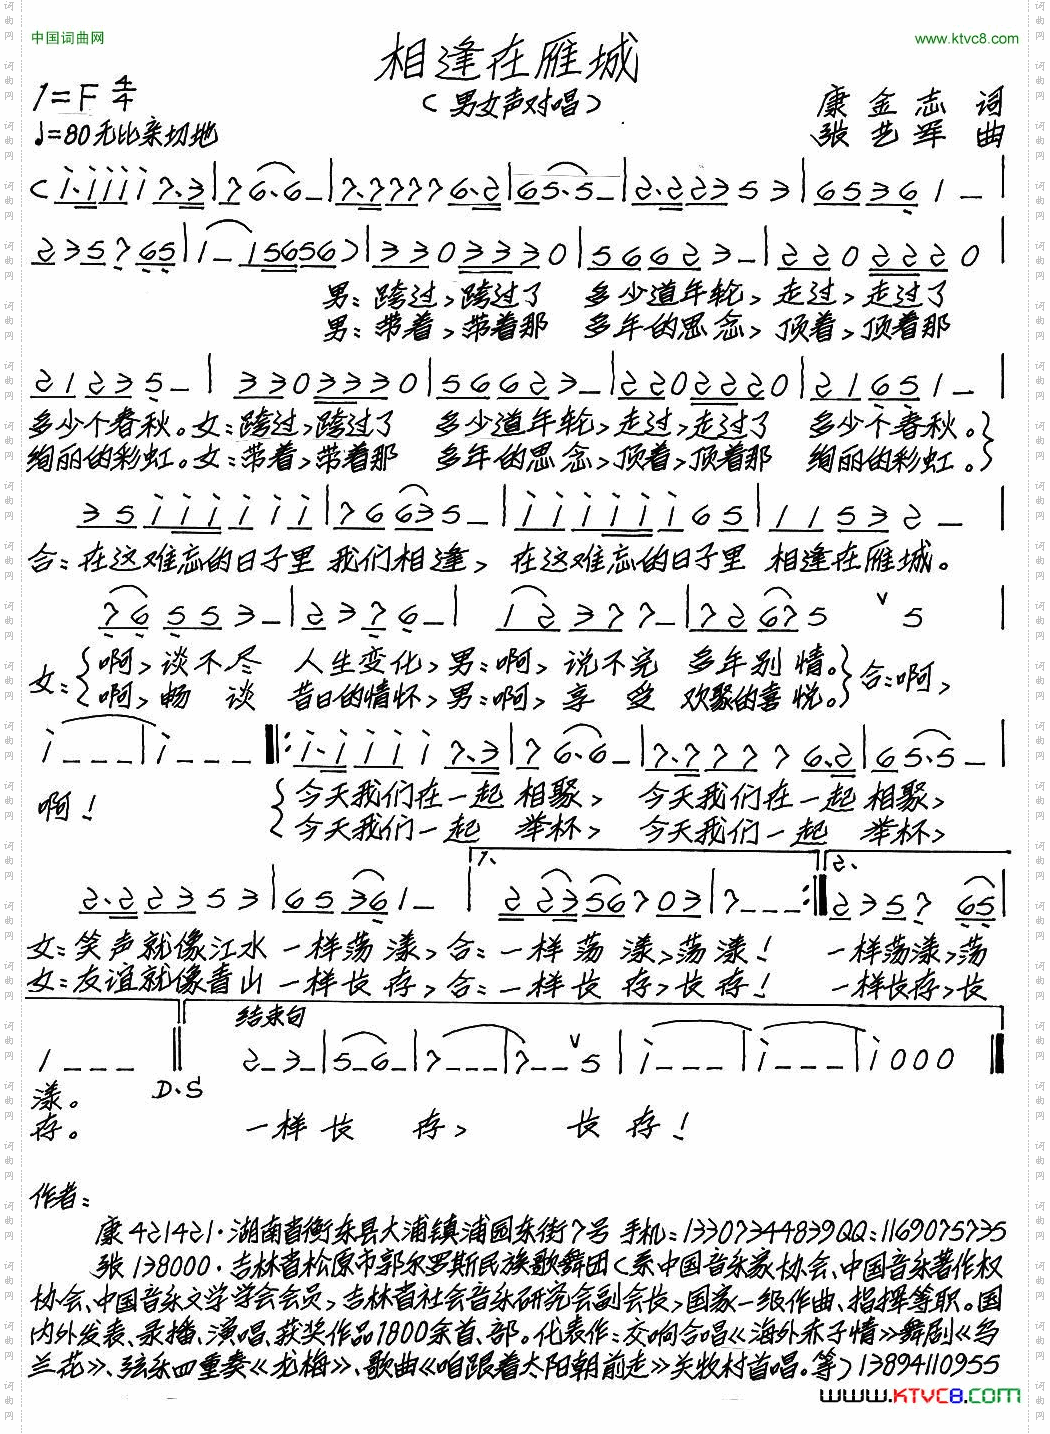 中国词曲网
www.ktvc8.com
相逢在雁城
(男女声对唱)
1=F 4/4
♩=80无比亲切地
康金志 词
张艺军 曲
(i·iiii7·3|76·6-|7·77776·2|65·5-|2·22353|65361-|
2357651-15656)|3303330|566623-|2202220|
男:跨过,跨过了 多少道年轮,走过,走过了
男:带着,带着那 多年的思念,顶着,顶着那
21235-|3303330|56623-|2202220|21651-|
多少个春秋。女:跨过,跨过了 多少道年轮,走过,走过了 多少个春秋。
绚丽的彩虹。女:带着,带着那 多年的思念,顶着,顶着那 绚丽的彩虹。
35iiiiii|76635-|iiiiii65|11532-|
合:在这难忘的日子里 我们相逢,在这难忘的日子里 相逢在雁城。
76553-|2376-|12377-|72675 ∨ 5|
女:{啊,谈不尽 人生变化,男:啊,说不完 多年别情。}合:啊,
啊,畅谈 昔日的情怀,男:啊,享受 欢聚的喜悦。
i---|i---‖:i·iiii7·3|76·6-|7·77776·2|65·5-|
啊!
今天我们在一起 相聚, 今天我们在一起 相聚,
今天我们一起 举杯, 今天我们一起 举杯,
1、 2、
2·22353|65361-|22356703|7---:‖2357 65|
女:笑声就像江水 一样荡漾,合:一样荡漾,荡漾! 一样荡漾,荡
女:友谊就像青山 一样长存,合:一样长存,长存! 一样长存,长
结束句
1---‖2-3-|5-6-|7---|7--∨5|i---|i---|i000‖
D.S
漾。
存。 一样长 存, 长存!
作者:
康421421·湖南省衡东县大浦镇浦园东街7号 手机:13307344839QQ:1169075735
张138000·吉林省松原市郭尔罗斯民族歌舞团(系中国音乐家协会、中国音乐著作权
协会、中国音乐文学学会会员,吉林省社会音乐研究会副会长,国家一级作曲、指挥等职。国
内外发表、录播、演唱、获奖作品1800余首、部。代表作:交响合唱《海外赤子情》舞剧《乌
兰花》、弦乐四重奏《龙梅》、歌曲《咱跟着太阳朝前走》关牧村首唱。等)13894110955
www.KTVC8.com